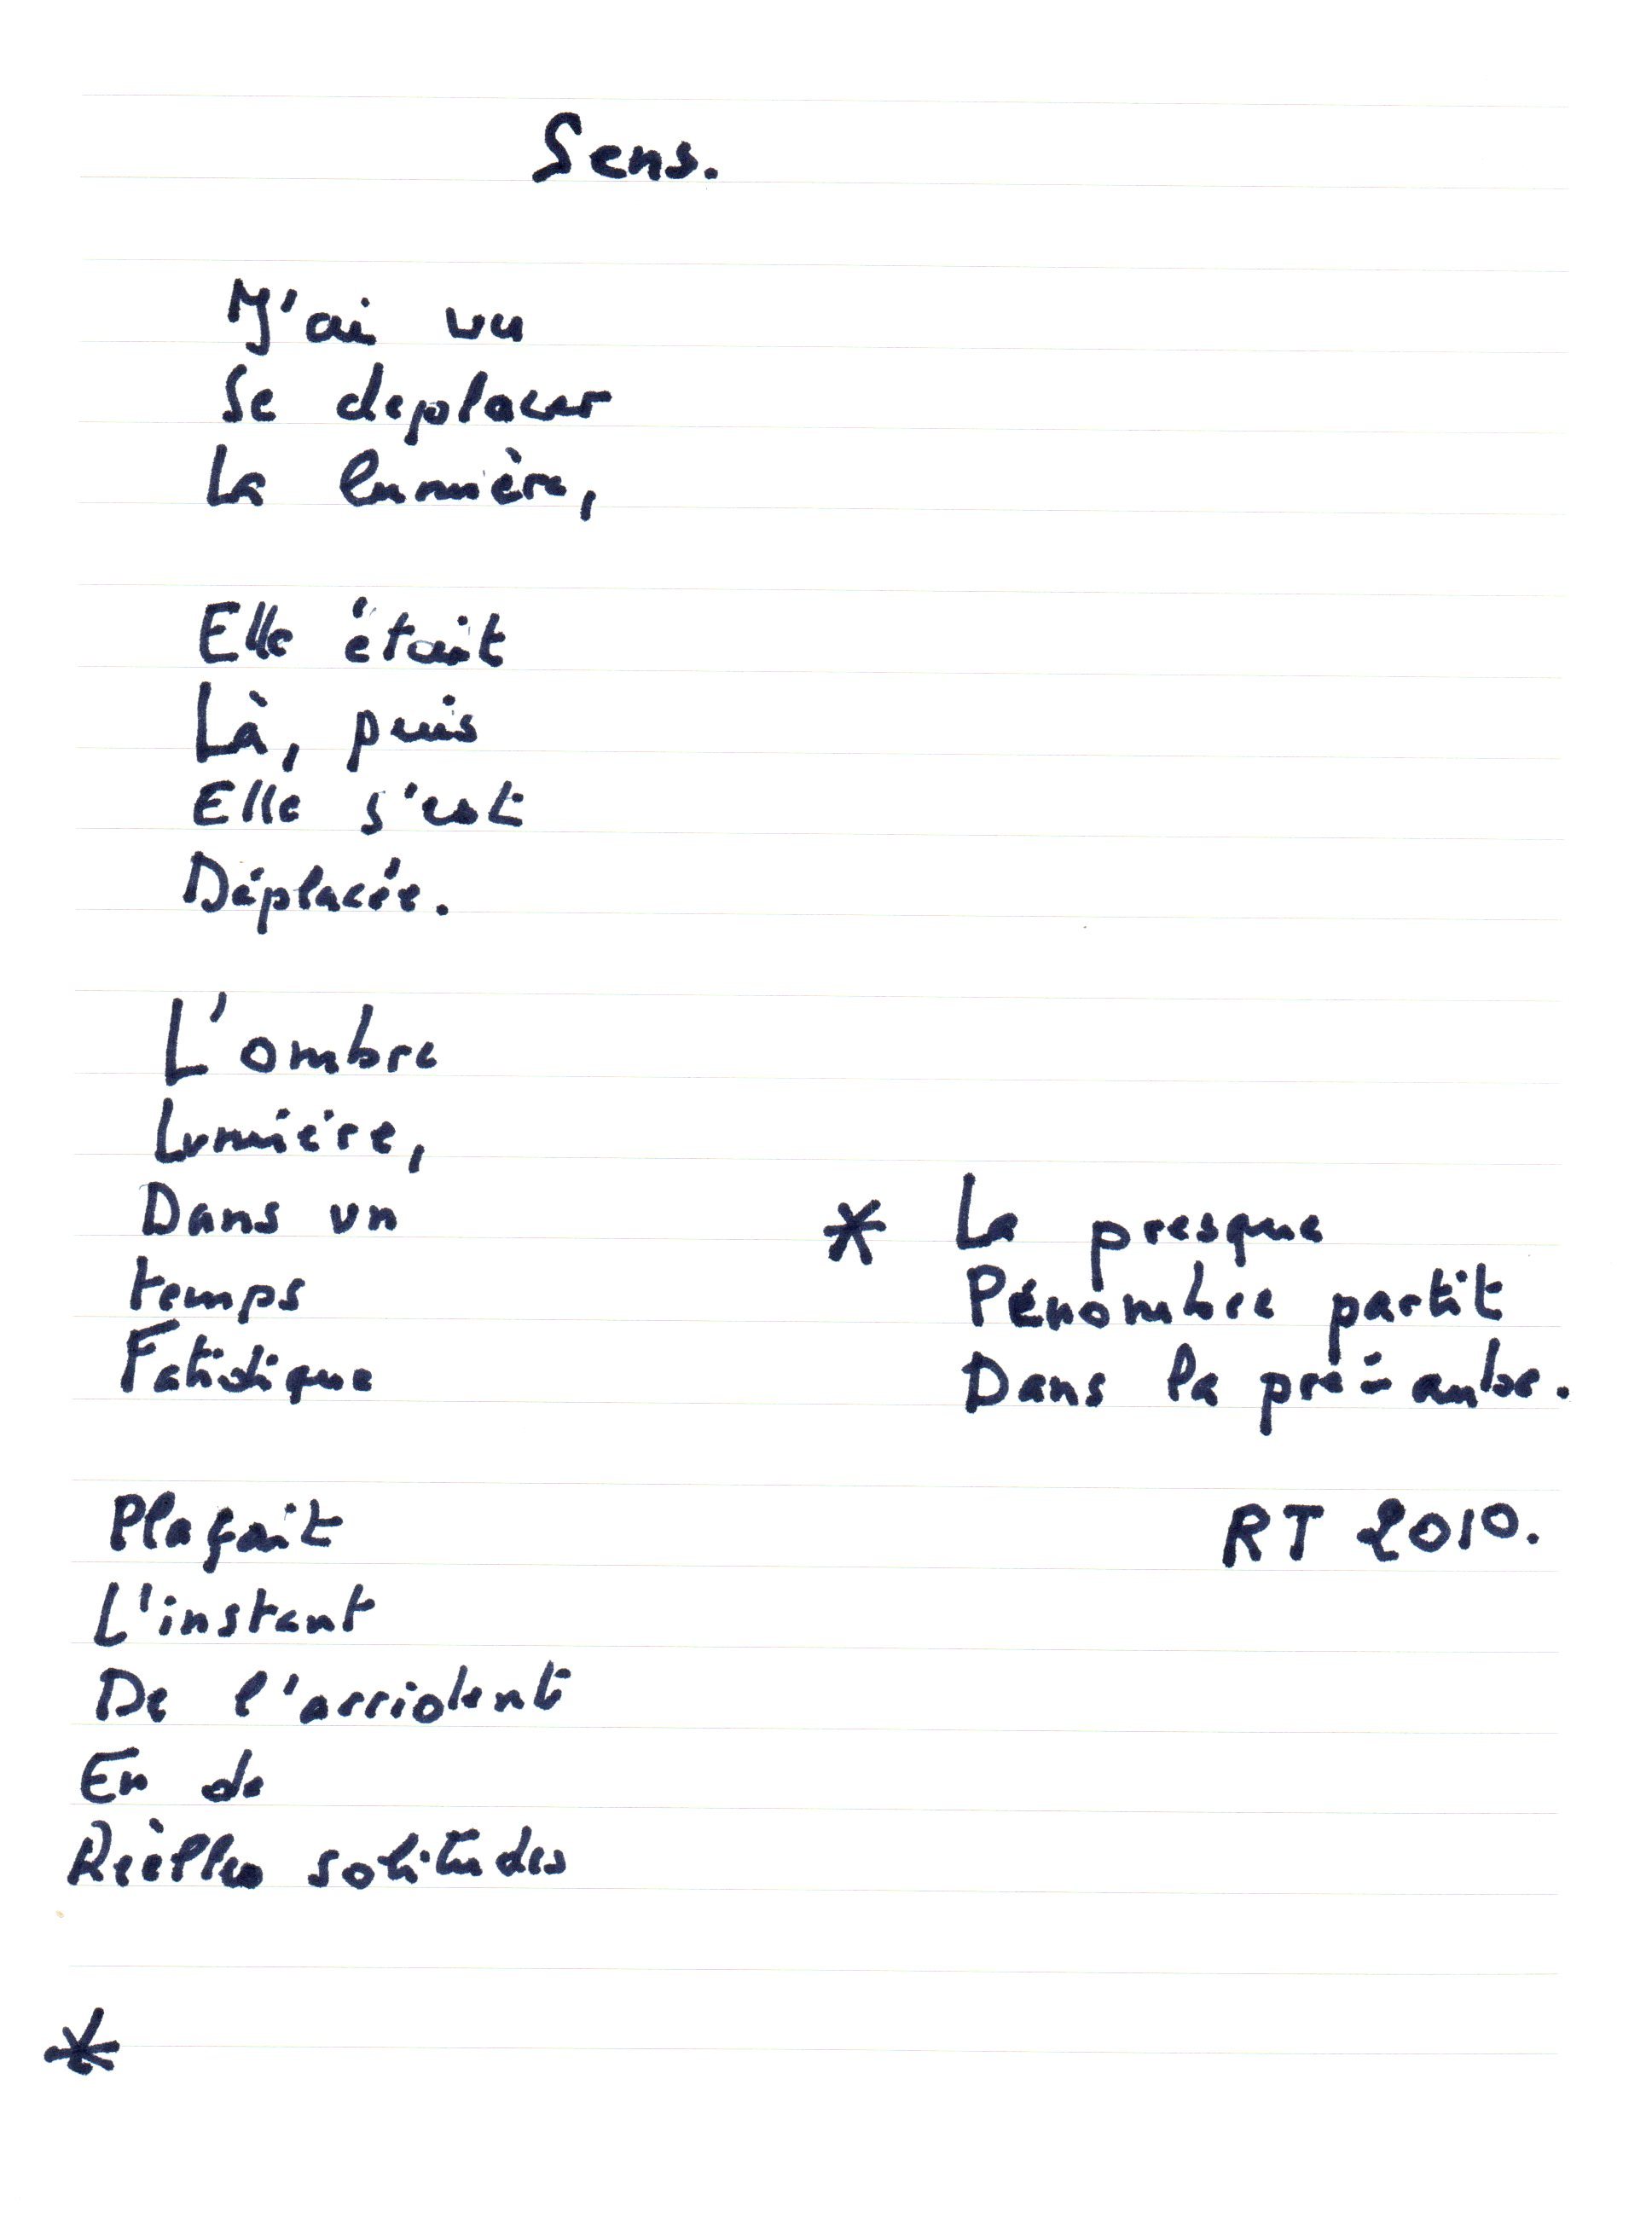 Sens.
J'ai vu
Se deplacer
La lumière,
Elle était
Là, puis
Elle s'est
Déplacée.
L'ombre
Lumière,
Dans un
temps
Fatidique
Plaçait
L'instant
De l'accident
En de
Réelles solitudes
*
* La presque
Pénombre partit
Dans la pré-aube.
RT 2010.